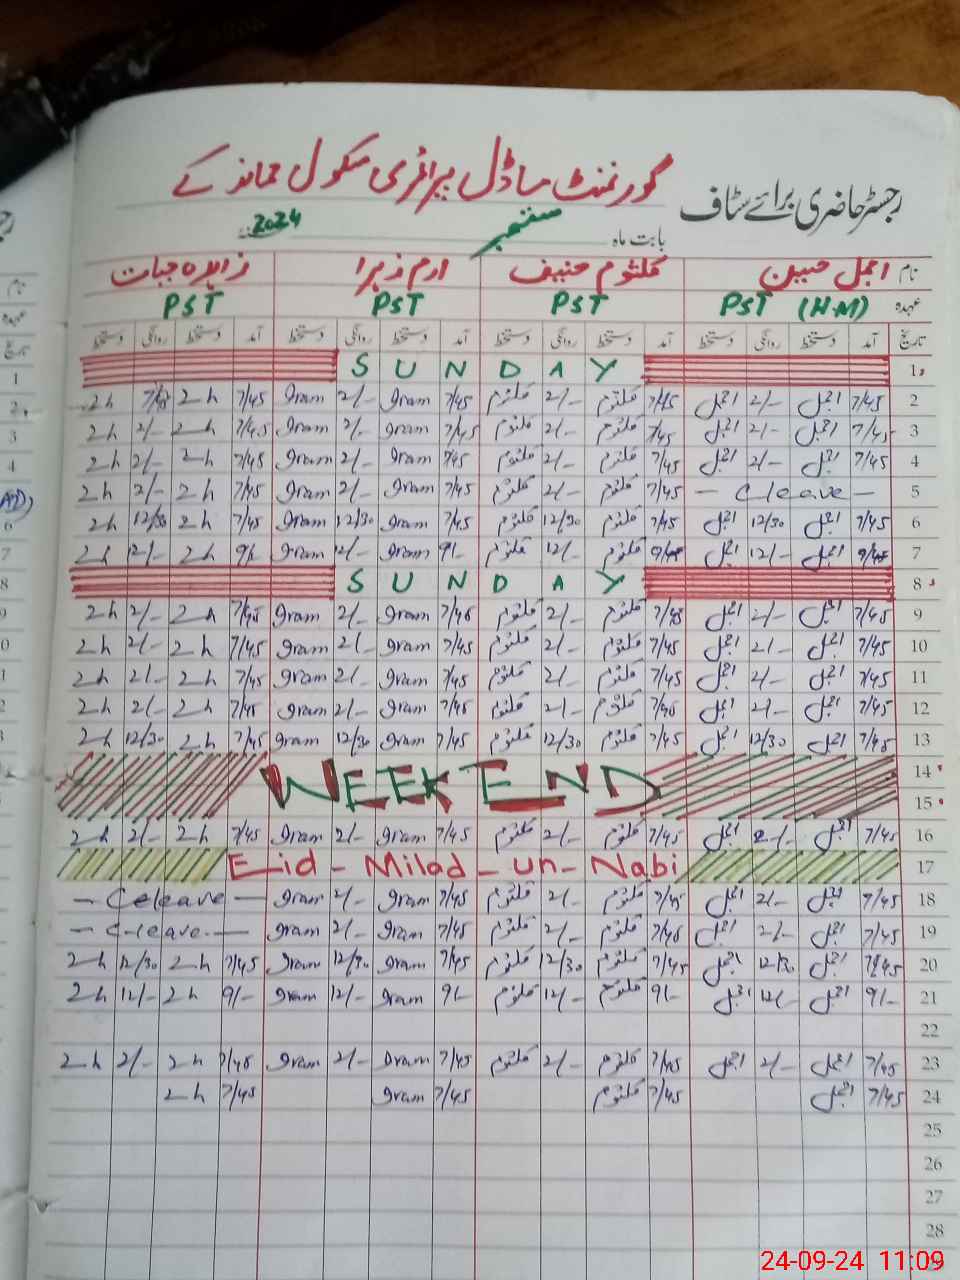 گورنمنٹ ماڈل پرائمری سکول
رجسٹر حاضری برائے سٹاف
بابت ماہ ستمبر 2024
نام اجمل حسین کلثوم حنیف ارم زہرا
عہدہ PST (H.M) PST PST PST
تاریخ آمد دستخط روانگی دستخط آمد دستخط روانگی دستخط آمد دستخط روانگی دستخط آمد دستخط روانگی دستخط
1 SUNDAY
2 7/45 اجمل 2/- اجمل 7/45 کلثوم 2/- کلثوم 7/45 Iram 2/- Iram 7/45 2h 2h
3 7/45 اجمل 2/- اجمل 7/45 کلثوم 2/- کلثوم 7/45 Iram 2/- Iram 7/45 2h 2/- 2h
4 7/45 اجمل 2/- اجمل 7/45 کلثوم 2/- کلثوم 7/45 Iram 2/- Iram 7/45 2h 2/- 2h
5 - C leave - 7/45 کلثوم 2/- کلثوم 7/45 Iram 2/- Iram 7/45 2h 2/- 2h
6 7/45 اجمل 12/30 اجمل 7/45 کلثوم 12/30 کلثوم 7/45 Iram 12/30 Iram 7/45 2h 12/30 2h
7 اجمل 12/- اجمل کلثوم 12/- کلثوم 9/- Iram 12/- Iram 9/- 2h 12/- 2h
8 SUNDAY
9 7/45 اجمل 2/- اجمل 7/45 کلثوم 2/- کلثوم 7/45 Iram 2/- Iram 7/45 2h 2/- 2h
10 7/45 اجمل 2/- اجمل 7/45 کلثوم 2/- کلثوم 7/45 Iram 2/- Iram 7/45 2h 2/- 2h
11 7/45 اجمل 2/- اجمل 7/45 کلثوم 2/- کلثوم 7/45 Iram 2/- Iram 7/45 2h 2/- 2h
12 7/45 اجمل 2/- اجمل 7/45 کلثوم 2/- کلثوم 7/45 Iram 2/- Iram 7/45 2h 2/- 2h
13 7/45 اجمل 12/30 اجمل 7/45 کلثوم 12/30 کلثوم 7/45 Iram 12/30 Iram 7/45 2h 12/30 2h
14 WEEK END
15
16 7/45 اجمل 2/- اجمل 7/45 کلثوم 2/- کلثوم 7/45 Iram 2/- Iram 7/45 2h 2/- 2h
17 Eid-Milad-un-Nabi
18 7/45 اجمل 2/- اجمل 7/45 کلثوم 2/- کلثوم 7/45 Iram 2/- Iram - C leave -
19 7/45 اجمل 2/- اجمل 7/45 کلثوم 2/- کلثوم 7/45 Iram 2/- Iram - C leave -
20 7/45 اجمل 12/30 اجمل 7/45 کلثوم 12/30 کلثوم 7/45 Iram 12/30 Iram 7/45 2h 12/30 2h
21 9/- اجمل 12/- اجمل 9/- کلثوم 12/- کلثوم 9/- Iram 12/- Iram 9/- 2h 12/- 2h
22
23 7/45 اجمل 2/- اجمل 7/45 کلثوم 2/- کلثوم 7/45 Iram 2/- Iram 7/45 2h 2/- 2h
24 7/45 اجمل 7/45 کلثوم 7/45 Iram 7/45 2h
25
26
27
28
24-09-24 11:09